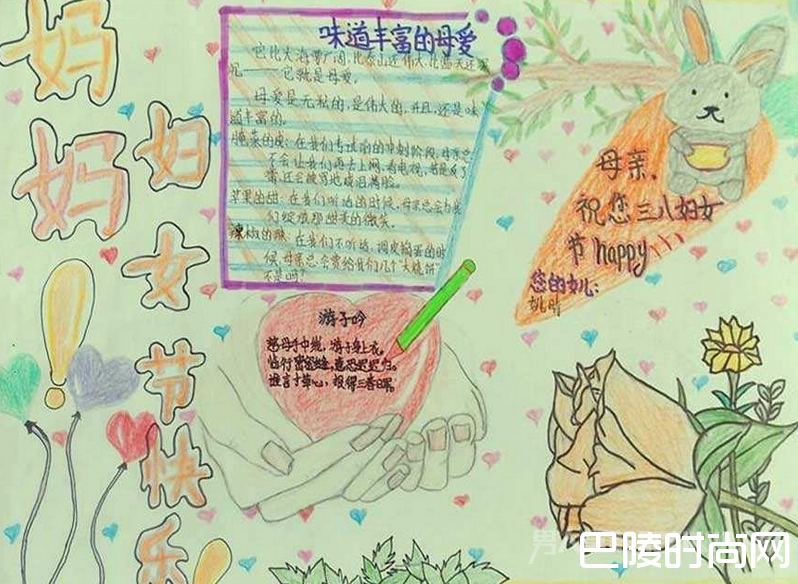 妈
妈
妇
女
节
快
乐
!
!
味道丰富的母爱
它比大海要广阔,比泰山还伟大,比蓝天还
——它就是母爱。
母爱是无私的,是伟大的,并且,还是味
道丰富的。
腌菜的咸:在我们考试前的冲刺阶段,母亲
不会让我们再去上网、看电视,
苹果的甜:在我们听话的时候,母亲总会与我
们绽放那甜美的微笑。
辣椒的辣:在我们不听话、调皮捣蛋的时
候,母亲总会赏给我们几个“大烧饼”
不是吗?
游子吟
慈母手中线,游子身上衣。
临行密密缝,意恐迟迟归。
谁言寸草心,报得三春晖。
母亲,
祝您三八妇女
节happy!!!
您的女儿:
巴陵时尚网